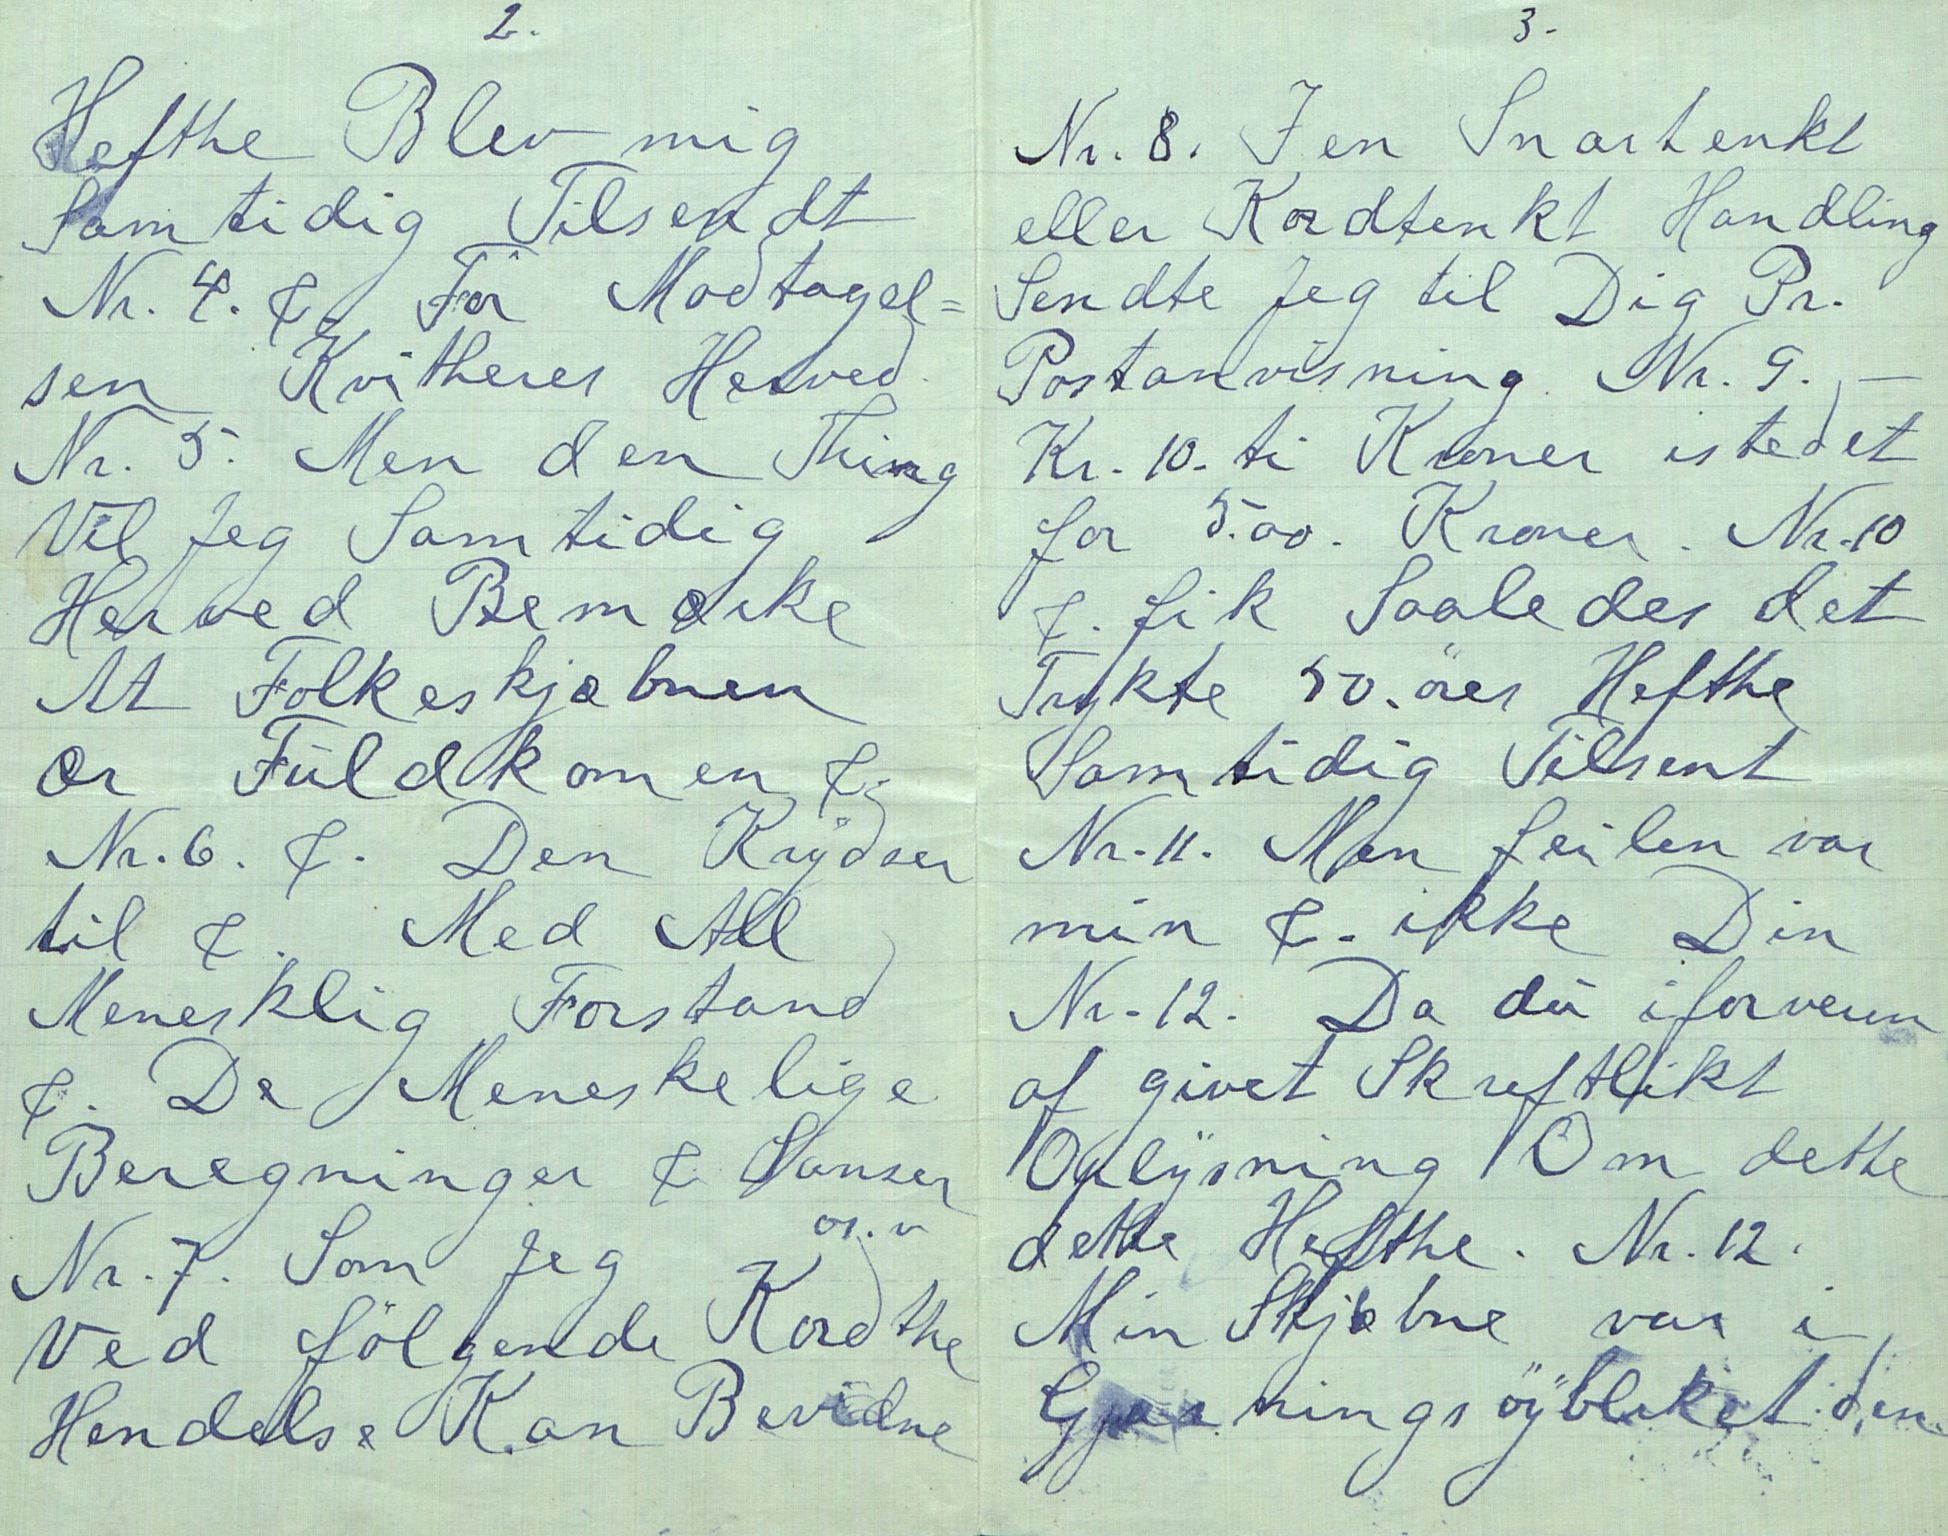 2.
Hefthe Blev mig
Samtidig Tilsendt
Nr. 4. &. For Modtagel=
sen Kvitheres Herved.
Nr. 5. Men den Thing
Vil Jeg Samtidig
Herved Bemerke
At Folkeskjæbnen
er Fuldkomen &.
Nr. 6. &. Den Krydser
til &. Med All
Menesklig Forstand
&. De Meneskelige
Beregninger &. Sanser
os.v
Nr. 7. Som Jeg
Ved följende Kordthe
Hendelse Kan Bevidne
3.
Nr. 8. I en Snartenkt
eller Kordtenkt Handling
Sendte Jeg til Dig Pr.
Postanvisning. Nr. 9. –
Kr. 10. ti Kroner istedet
for 5.00. Kroner. Nr. 10
&. fik Saaledes det
Trykte 50. öres Hefthe
Samtidig Tilsent
Nr. 11. Men feilen var
min &. ikke Din
Nr. 12. Da du iforveien
af givet Skreftlikt
Oplysning Om dette
dette Hefthe. Nr. 12.
Min Skjebne var i
Gjerningsöyblikket den